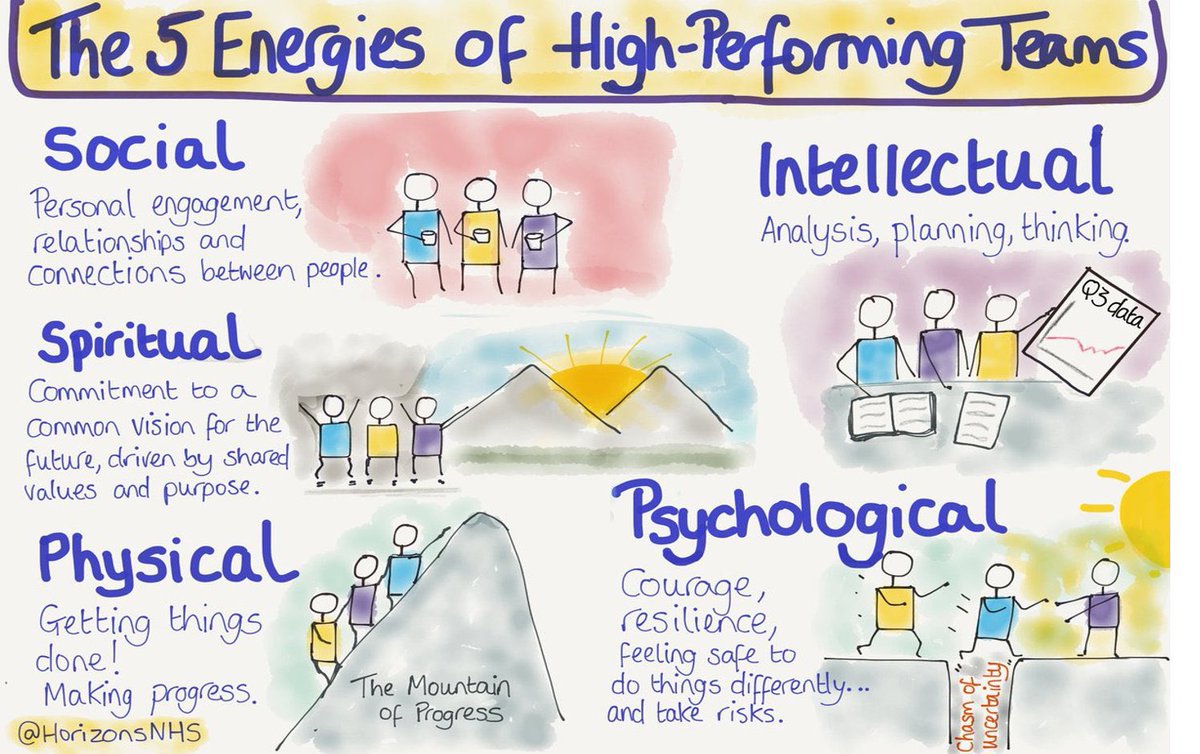 The 5 Energies of High-Performing Teams
Social
Personal engagement,
relationships and
connections between people.
Intellectual
Analysis, planning, thinking.
Q3 data
Spiritual
Commitment to a
common vision for the
future, driven by shared
values and purpose.
Physical
Getting things
done!
Making progress.
The Mountain
of Progress
Psychological
Courage,
resilience,
feeling safe to
do things differently...
and take risks.
"Chasm of
uncertainty"
@HorizonsNHS